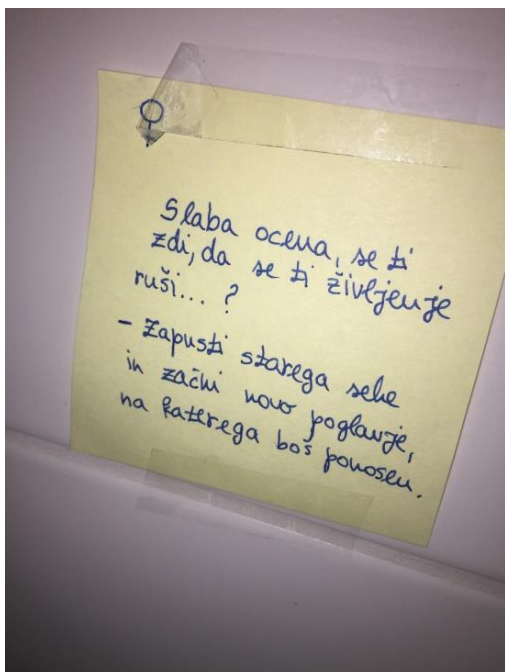 Slaba ocena, se ti
zdi, da se ti življenje
ruši... ?
- Zapusti starega sebe
in začni novo poglavje,
na katerega boš ponosen.